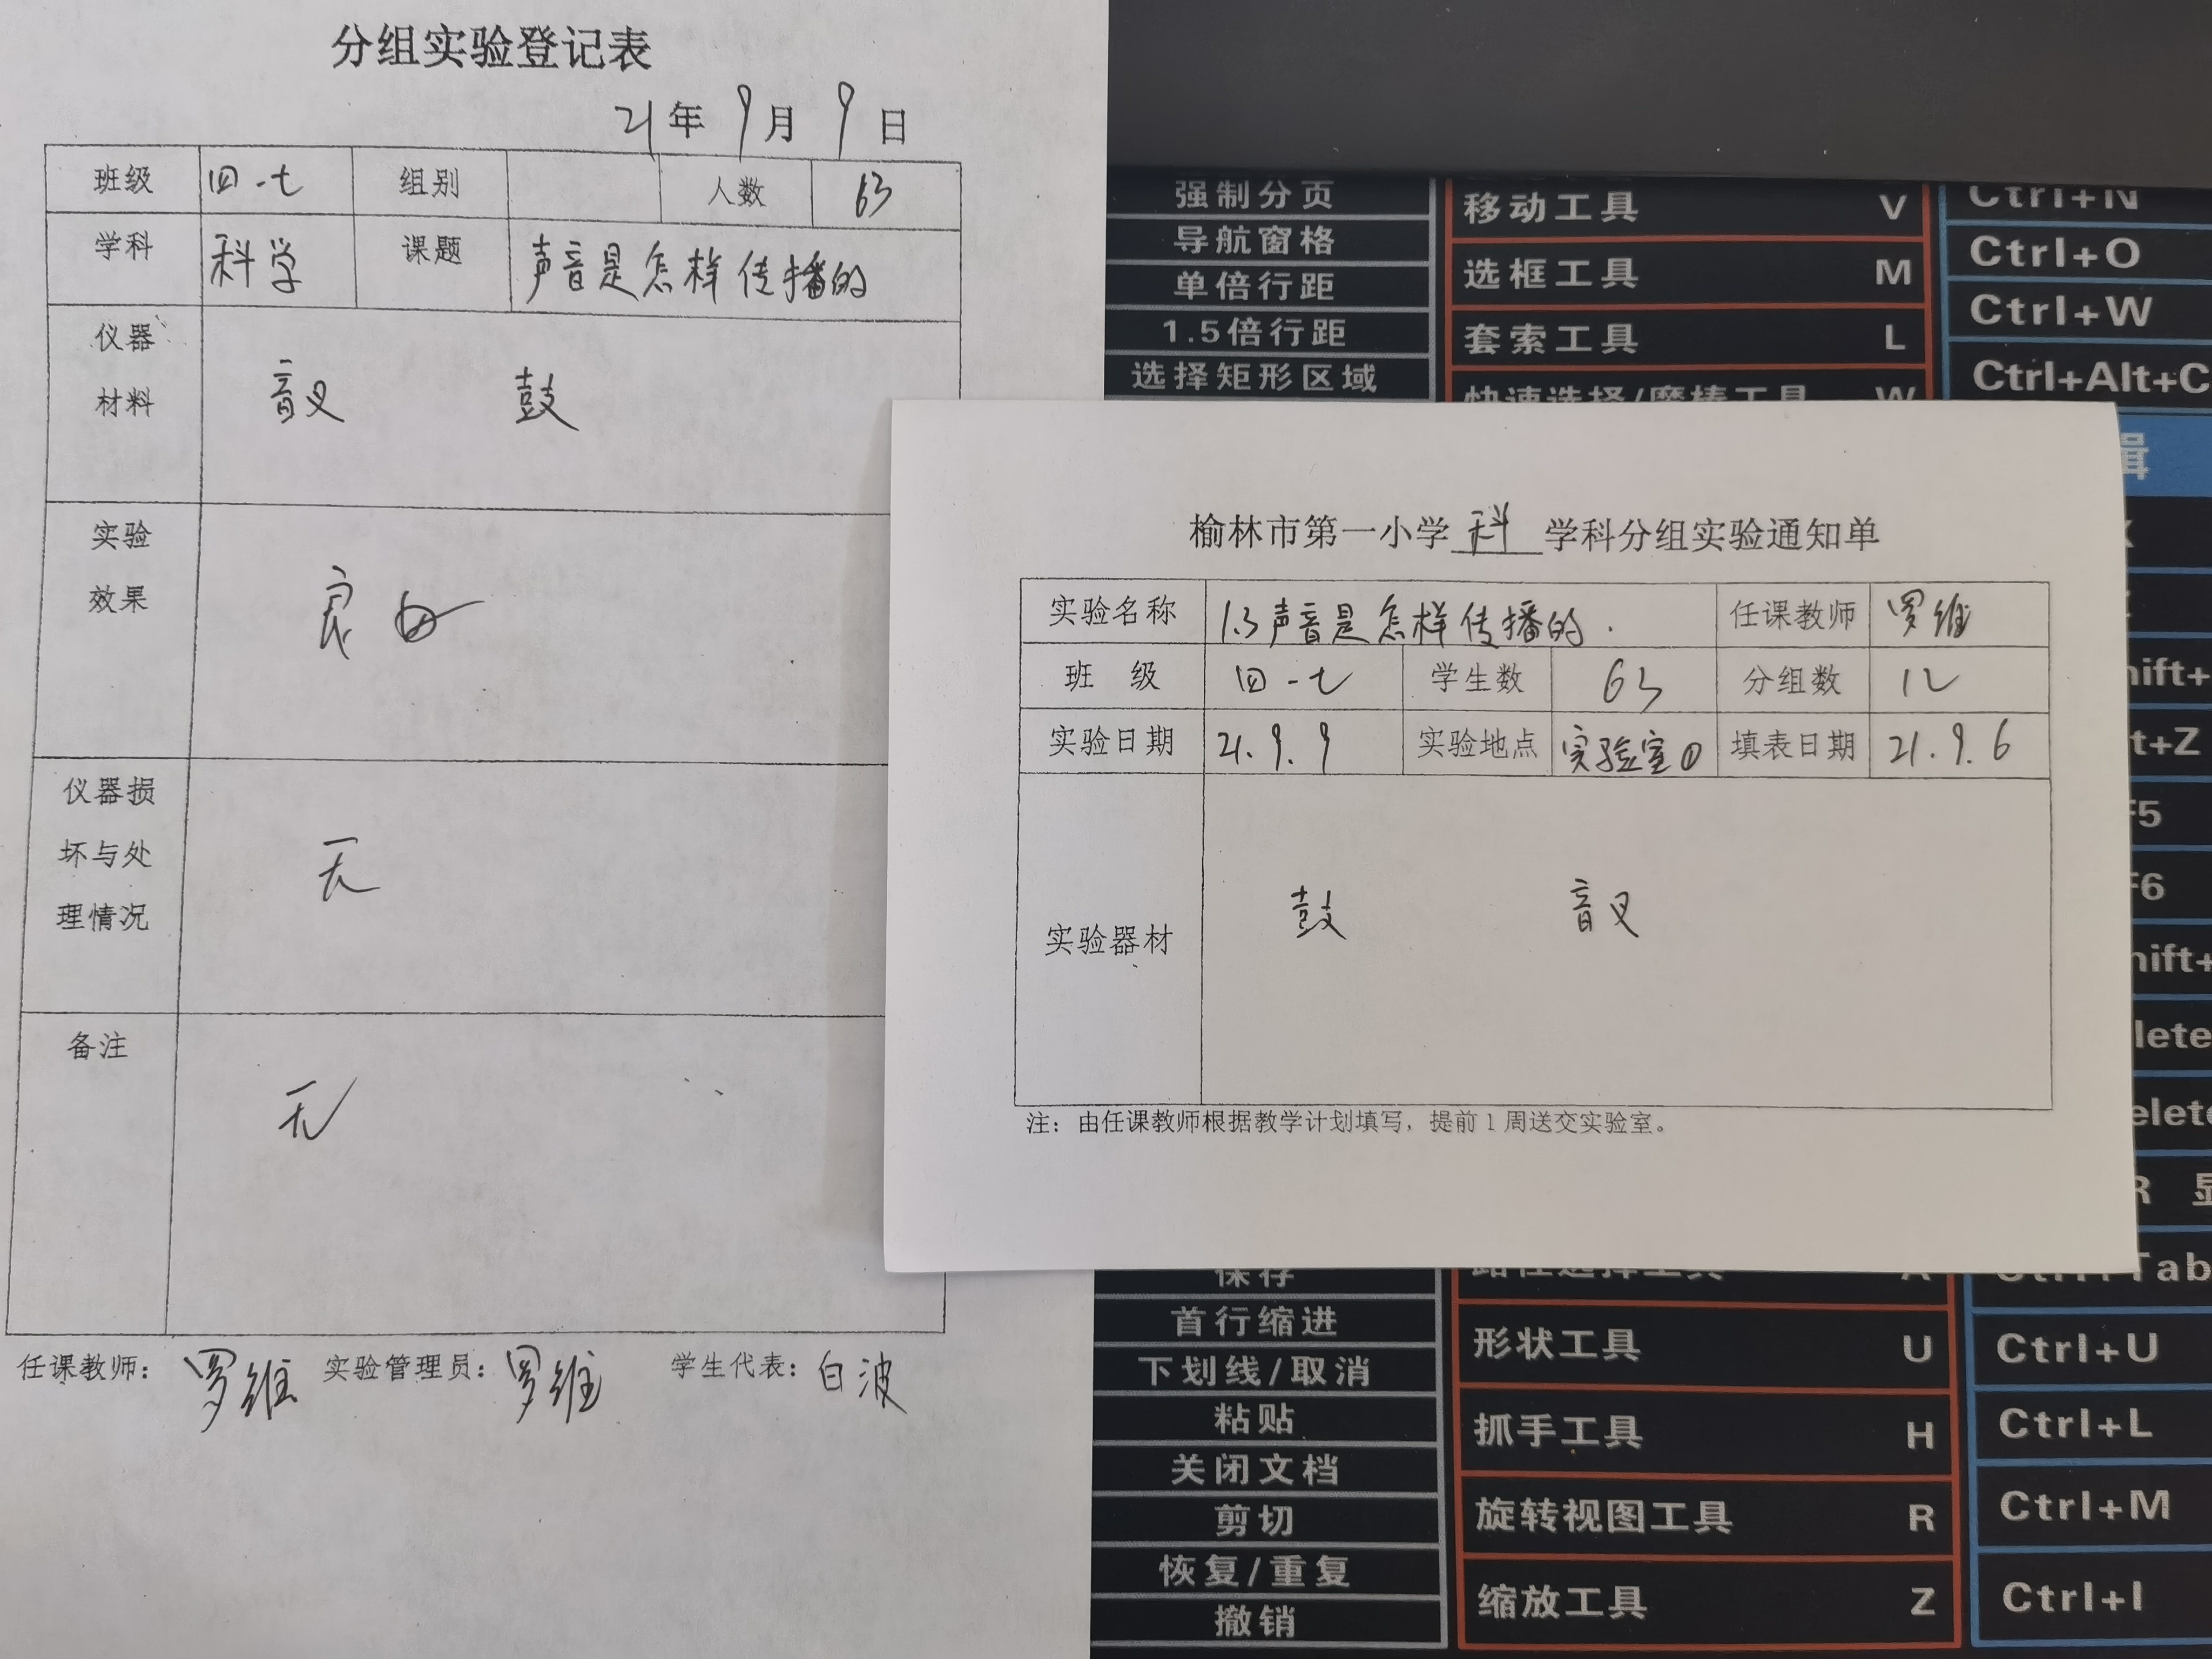 分组实验登记表
21年9月9日
班级 四-七 组别 人数 63
学科 科学 课题 声音是怎样传播的
仪器材料 音叉 鼓
实验效果 良好
仪器损坏与处理情况 无
备注 无
任课教师：罗维 实验管理员：罗维 学生代表：白波
榆林市第一小学科学科分组实验通知单
实验名称 1.3声音是怎样传播的. 任课教师 罗维
班 级 四-七 学生数 63 分组数 12
实验日期 21.9.9 实验地点 实验室① 填表日期 21.9.6
实验器材 鼓 音叉
注：由任课教师根据教学计划填写，提前1周送交实验室。
强制分页
导航窗格
单倍行距
1.5倍行距
选择矩形区域
保存
首行缩进
下划线/取消
粘贴
关闭文档
剪切
恢复/重复
撤销
移动工具 V
选框工具 M
套索工具 L
快速选择/魔棒工具 W
路径选择工具 A
形状工具 U
抓手工具 H
旋转视图工具 R
缩放工具 Z
Ctrl+N
Ctrl+O
Ctrl+W
Ctrl+Alt+C
辑
hift+
t+Z
F5
F6
hift+
lete
elete
R 显
Ctrl+Tab
Ctrl+U
Ctrl+L
Ctrl+M
Ctrl+I